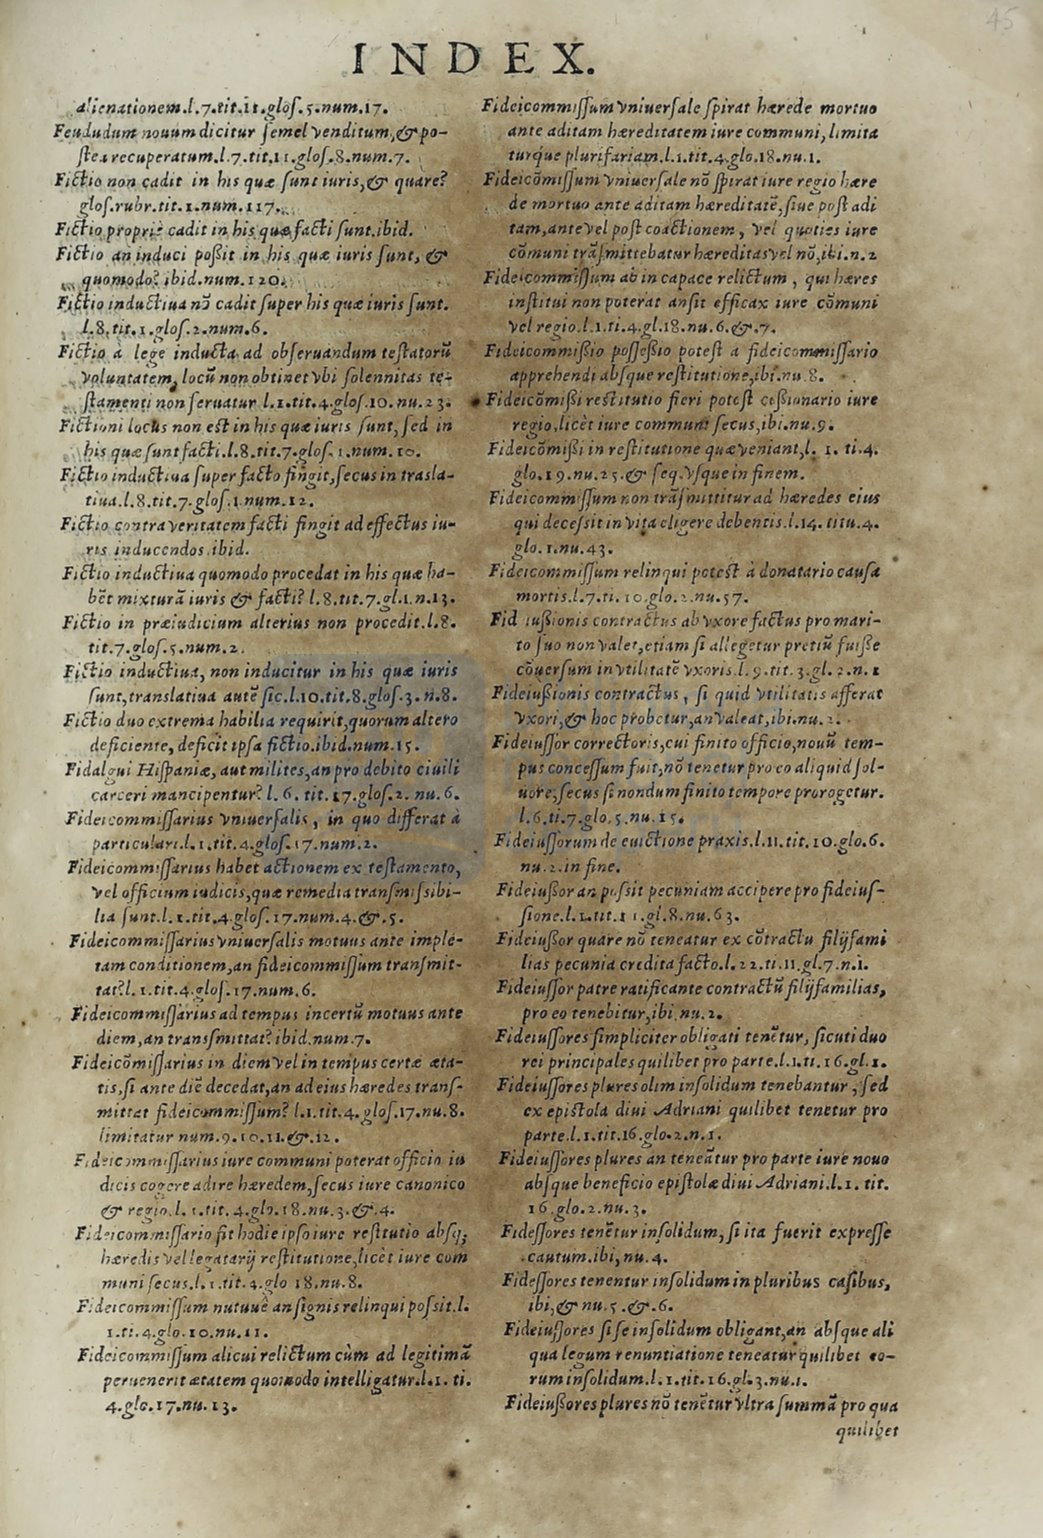 45
INDEX.
alienationem.l.7.tit.11.glos.5.num.17.
Feududum nouum dicitur semel venditum,& po-
stea recuperatum.l.7.tit.11.glos.8.num.7.
Fictio non cadit in his quæ sunt iuris,& quare?
glos.rubr.tit.1.num.117.
Fictio propriè cadit in his quæ facti sunt.ibid.
Fictio an induci poßit in his quæ iuris sunt, &
quomodo? ibid.num.120.
Fictio inductiua nõ cadit super his quæ iuris sunt.
l.8.tit.1.glos.2.num.6.
Fictio à lege inducta ad obseruandum testatorũ
voluntatem, locũ non obtinet vbi solennitas te-
stamenti non seruatur l.1.tit.4.glos.10.nu.23.
Fictioni locus non est in his quæ iuris sunt, sed in
his quæ sunt facti.l.8.tit.7.glos.1.num.10.
Fictio inductiua super facto fingit,secus in trasla-
tiua.l.8.tit.7.glos.1.num.12.
Fictio contra veritatem facti fingit ad effectus iu-
ris inducendos.ibid.
Fictio inductiua quomodo procedat in his quæ ha-
bẽt mixturã iuris & facti? l.8.tit.7.gl.1.n.13.
Fictio in præiudicium alterius non procedit.l.8.
tit.7.glos.5.num.2.
Fictio inductiua, non inducitur in his quæ iuris
sunt,translatiua autẽ sic.l.10.tit.8.glos.3.n.8.
Fictio duo extrema habilia requirit,quorum altero
deficiente, deficit ipsa fictio.ibid.num.15.
Fidalgui Hispaniæ, aut milites,an pro debito ciuili
carceri mancipentur? l.6. tit.17.glos.2. nu.6.
Fideicommissarius vniuersalis, in quo differat à
particulari.l.1.tit.4.glos.17.num.2.
Fideicommissarius habet actionem ex testamento,
vel officium iudicis,quæ remedia transmissibi-
lia sunt.l.1.tit.4.glos.17.num.4.&.5.
Fideicommissarius vniuersalis motuus ante imple-
tam conditionem,an fideicommissum transmit-
tat?l.1.tit.4.glos.17.num.6.
Fideicommissarius ad tempus incertũ motuus ante
diem,an transmittat? ibid.num.7.
Fideicõmissarius in diem vel in tempus certæ æta-
tis,si ante diẽ decedat,an ad eius hæredes trans-
mittat fideicommissum? l.1.tit.4.glos.17.nu.8.
limitatur num.9.10.11.&.12.
Fideicommissarius iure communi poterat officio iu
dicis cogere adire hæredem,secus iure canonico
& regio.l.1.tit.4.glo.18.nu.3.&.4.
Fideicommissario fit hodie ipso iure restitutio absq;
hæredis vel legatarij restitutione,licèt iure com
muni secus.l.1.tit.4.glo 18.nu.8.
Fideicommissum nutuuè an signis relinqui possit.l.
1.ti.4.glo.10.nu.11.
Fideicommissum alicui relictum cùm ad legitimã
peruenerit ætatem quomodo intelligatur.l.1. ti.
4.glo.17.nu.13.
Fideicommissum vniuersale spirat hærede mortuo
ante aditam hæreditatem iure communi, limita
turque plurifariam.l.1.tit.4.glo.18.nu.1.
Fideicõmissum vniuersale nõ spirat iure regio hære
de mortuo ante aditam hæreditatẽ,siue post adi
tam,ante vel post coactionem, vel quoties iure
cõmuni trãsmittebatur hæreditas vel nõ,ibi.n.2
Fideicommissum ab incapace relictum, qui hæres
institui non poterat ansit efficax iure cõmuni
vel regio.l.1.ti.4.gl.18.nu.6.&.7.
Fideicommißio possessio potest a fideicommissario
apprehendi absque restitutione,ibi.nu.8.
Fideicõmißi restitutio fieri potest cessionario iure
regio,licèt iure communi secus,ibi.nu.9.
Fideicõmißi in restitutione quæ veniant,l. 1. ti.4.
glo.19.nu.25.& seq.vsque in finem.
Fideicommissum non trãsmittitur ad hæredes eius
qui decessit in vita eligere debentis.l.14. titu.4.
glo.1.nu.43.
Fideicommissum relinqui potest à donatario causa
mortis.l.7.ti.10.glo.2.nu.57.
Fid iußionis contractus ab vxore factus pro mari-
to suo non valet,etiam si allegetur pretiũ fuisse
cõuersum in vtilitatẽ vxoris.l.9.tit.3.gl.2.n.1
Fideiußionis contractus, si quid vtilitatis afferat
vxori,& hoc probetur,an valeat,ibi.nu.2.
Fideiussor correctoris,cui finito officio,nouũ tem-
pus concessum fuit,nõ tenetur pro eo aliquid sol-
uore,secus si nondum finito tempore prorogetur.
l.6.ti.7.glo.5.nu.15.
Fideiussorum de euictione praxis.l.11.tit.10.glo.6.
nu.2.in fine.
Fideiußor an possit pecuniam accipere pro fideius-
sione.l.1.tit.11.gl.8.nu.63.
Fideiußor quare nõ teneatur ex cõtractu filijfami
lias pecunia credita facto.l.22.ti.11.gl.7.n.1.
Fideiussor patre ratificante contractũ filijfamilias,
pro eo tenebitur,ibi.nu.2.
Fideiussores simpliciter obligati tenẽtur, sicuti duo
rei principales quilibet pro parte.l.1.ti.16.gl.1.
Fideiussores plures olim insolidum tenebantur, sed
ex epistola diui Adriani quilibet tenetur pro
parte.l.1.tit.16.glo.2.n.1.
Fideiussores plures an teneãtur pro parte iure nouo
absque beneficio epistolæ diui Adriani.l.1. tit.
16.glo.2.nu.3.
Fidessores tenẽtur insolidum, si ita fuerit expresse
cautum.ibi,nu.4.
Fidessores tenentur insolidum in pluribus casibus,
ibi,& nu.5.&.6.
Fideiussores si se insolidum obligant,an absque ali
qua legum renuntiatione teneatur quilibet eo-
rum insolidum.l.1.tit.16.gl.3.nu.1.
Fideiußores plures nõ tenẽtur vltra summã pro qua
quilibet